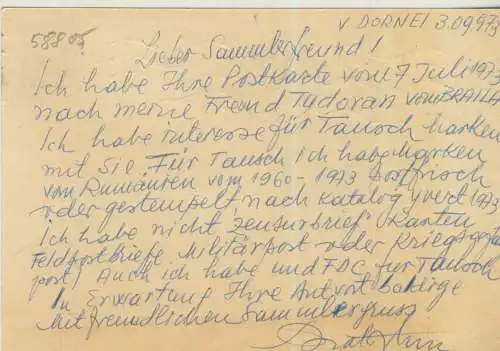 V DORNEI 3.09.973
58805
Lieber Sammlerfreund!
Ich habe Ihre Postkarte vom 7 Juli 1973
nach meine Freund Tudoran vom BRAILA
Ich habe interesse für Tausch marken
mit Sie. Für Tausch ich habe Marken
von Rumänien vom 1960-1973 Postfrisch
oder gestempelt nach Katalog yvert 1973
Ich habe nicht "zensurbrief" Karten
Feldpostbriefe, Militärpost oder Kriegsgefa
post! Auch ich habe und FDC für Tausch
In Erwartung Ihre Antwort baldige
Mit freundlichen Sammlergruss